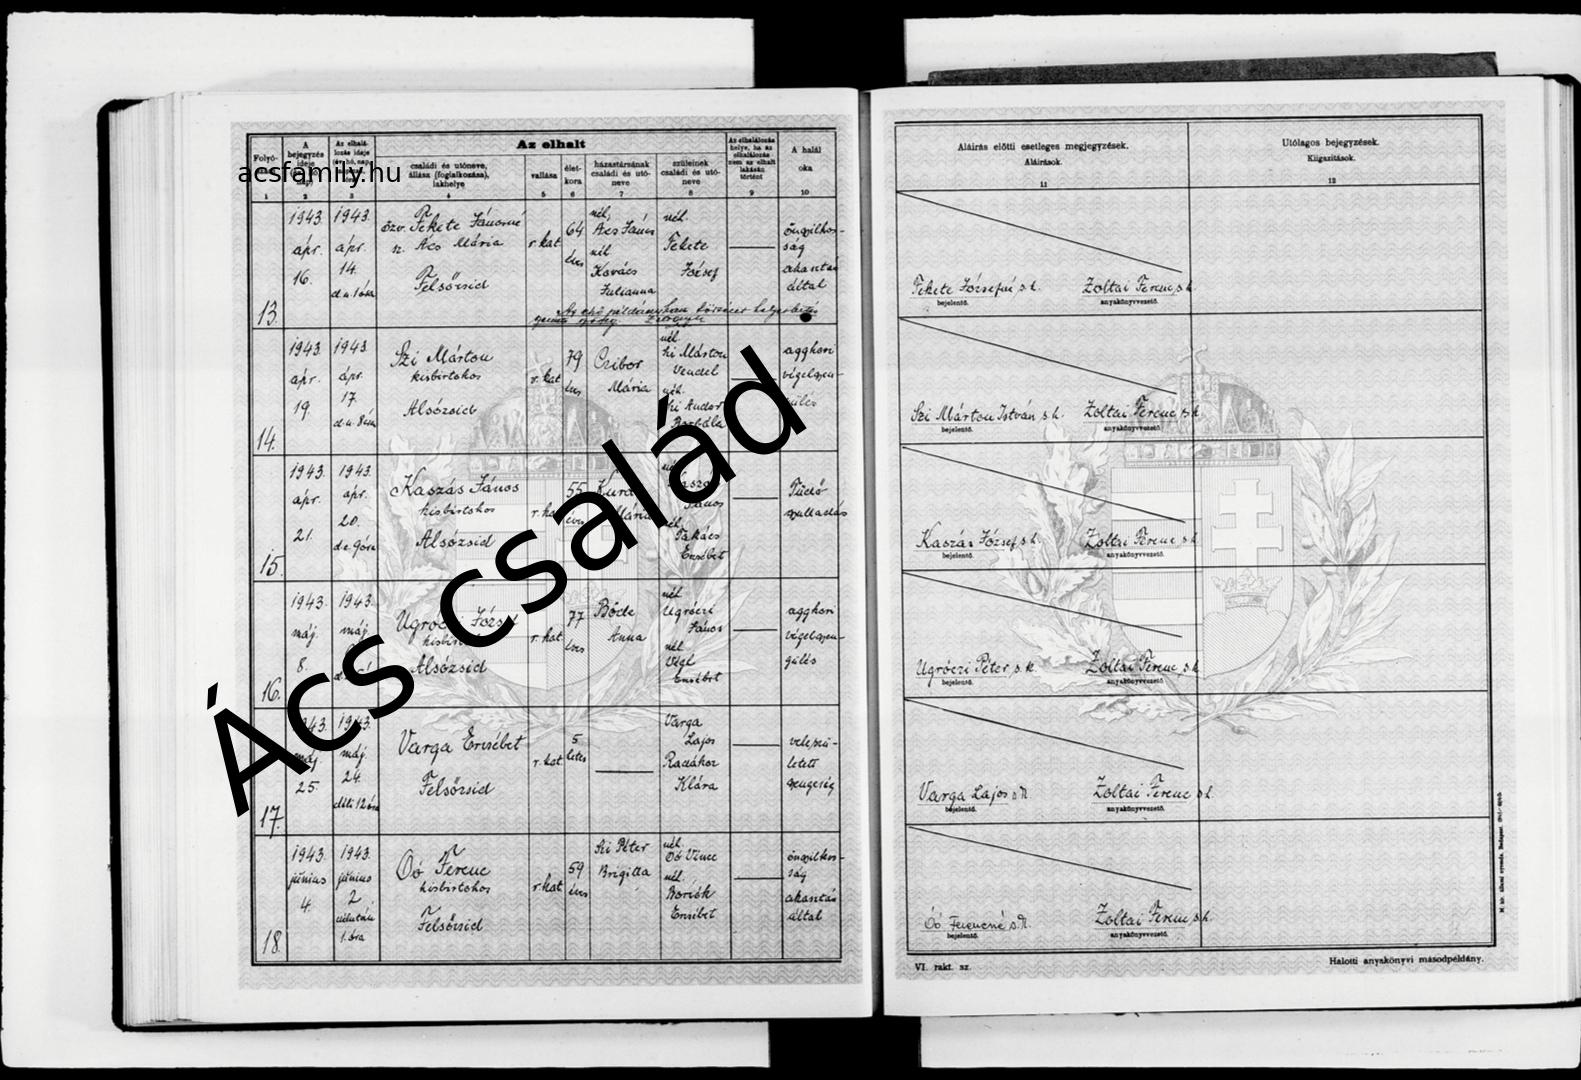 Az elhalt
Folyó-
A bejegyzés ideje
Az elhalá-
lozás ideje
családi és utóneve,
állása (foglalkozása),
lakhelye
vallása
élet-
kora
házastársának
családi és utó-
neve
szüleinek
családi és utó-
neve
Az elhalálozás
helye, ha az
elhalálozás
nem az elhalt
lakásán
történt
A halál
oka
acsfamily.hu
1 2 3 4 5 6 7 8 9 10
13.
1943.
ápr.
16.
1943.
ápr.
14.
d.u. 1 óra
özv. Fekete Jánosné
n. Ács Mária
Felsőzsid
r. kat
64
éves
néh.
Ács János
néh
Kovács
Julianna
néh.
Fekete
József
öngyilkos-
ság
akasztás
által
14.
1943.
ápr.
19.
1943.
ápr.
17.
d.u. 8 óra
Szi Márton
kisbirtokos
Alsózsid
r. kat
79
éves
Czibor
Mária
néh
Szi Márton
Vendel
néh.
Szi Andor
Borbála
aggkori
végelgyen-
gülés
15.
1943.
ápr.
21.
1943.
ápr.
20.
d.e. 9 óra
Kaszás János
kisbirtokos
Alsózsid
55
éves
Mária
János
Takács
Erzsébet
Tüdő
gyulladás
16.
1943.
máj.
8.
1943.
máj
Alsózsid
r. kat
77
éves
Böde
Anna
néh
Ugróczi
János
néh
Végl
Erzsébet
aggkori
végelgyen-
gülés
17.
máj.
25.
1943.
máj.
24.
déli 12 óra
Varga Erzsébet
Felsőzsid
r. kat
5
hetes
Varga
Lajos
Radákor
Klára
veleszü-
letett
gyengeség
18.
1943.
június
4.
1943.
június
2
délután
1. óra
Oó Ferenc
kisbirtokos
Felsőzsid
r. kat
59
éves
Szi Péter
Brigitta
néh.
Oó Vince
néh.
Borsók
Erzsébet
öngyilkos-
ság
akasztás
által
Ács család
Aláírás előtti esetleges megjegyzések.
Aláírások.
11
Utólagos bejegyzések.
Kiigazítások.
12
Fekete Józsefné s.k. Zoltai Ferenc s.k
bejelentő. anyakönyvvezető.
Szi Márton István s.k. Zoltai Ferenc s.k.
bejelentő. anyakönyvvezető.
Kaszás József s.k. Zoltai Ferenc s.k
bejelentő. anyakönyvvezető.
Ugróczi Péter s.k. Zoltai Ferenc s.k
bejelentő. anyakönyvvezető.
Varga Lajos s.k. Zoltai Ferenc s.k.
bejelentő. anyakönyvvezető.
Oó Ferencné s.k. Zoltai Ferenc s.k.
bejelentő. anyakönyvvezető.
VI. rakt. sz.
Halotti anyakönyvi másodpéldány.